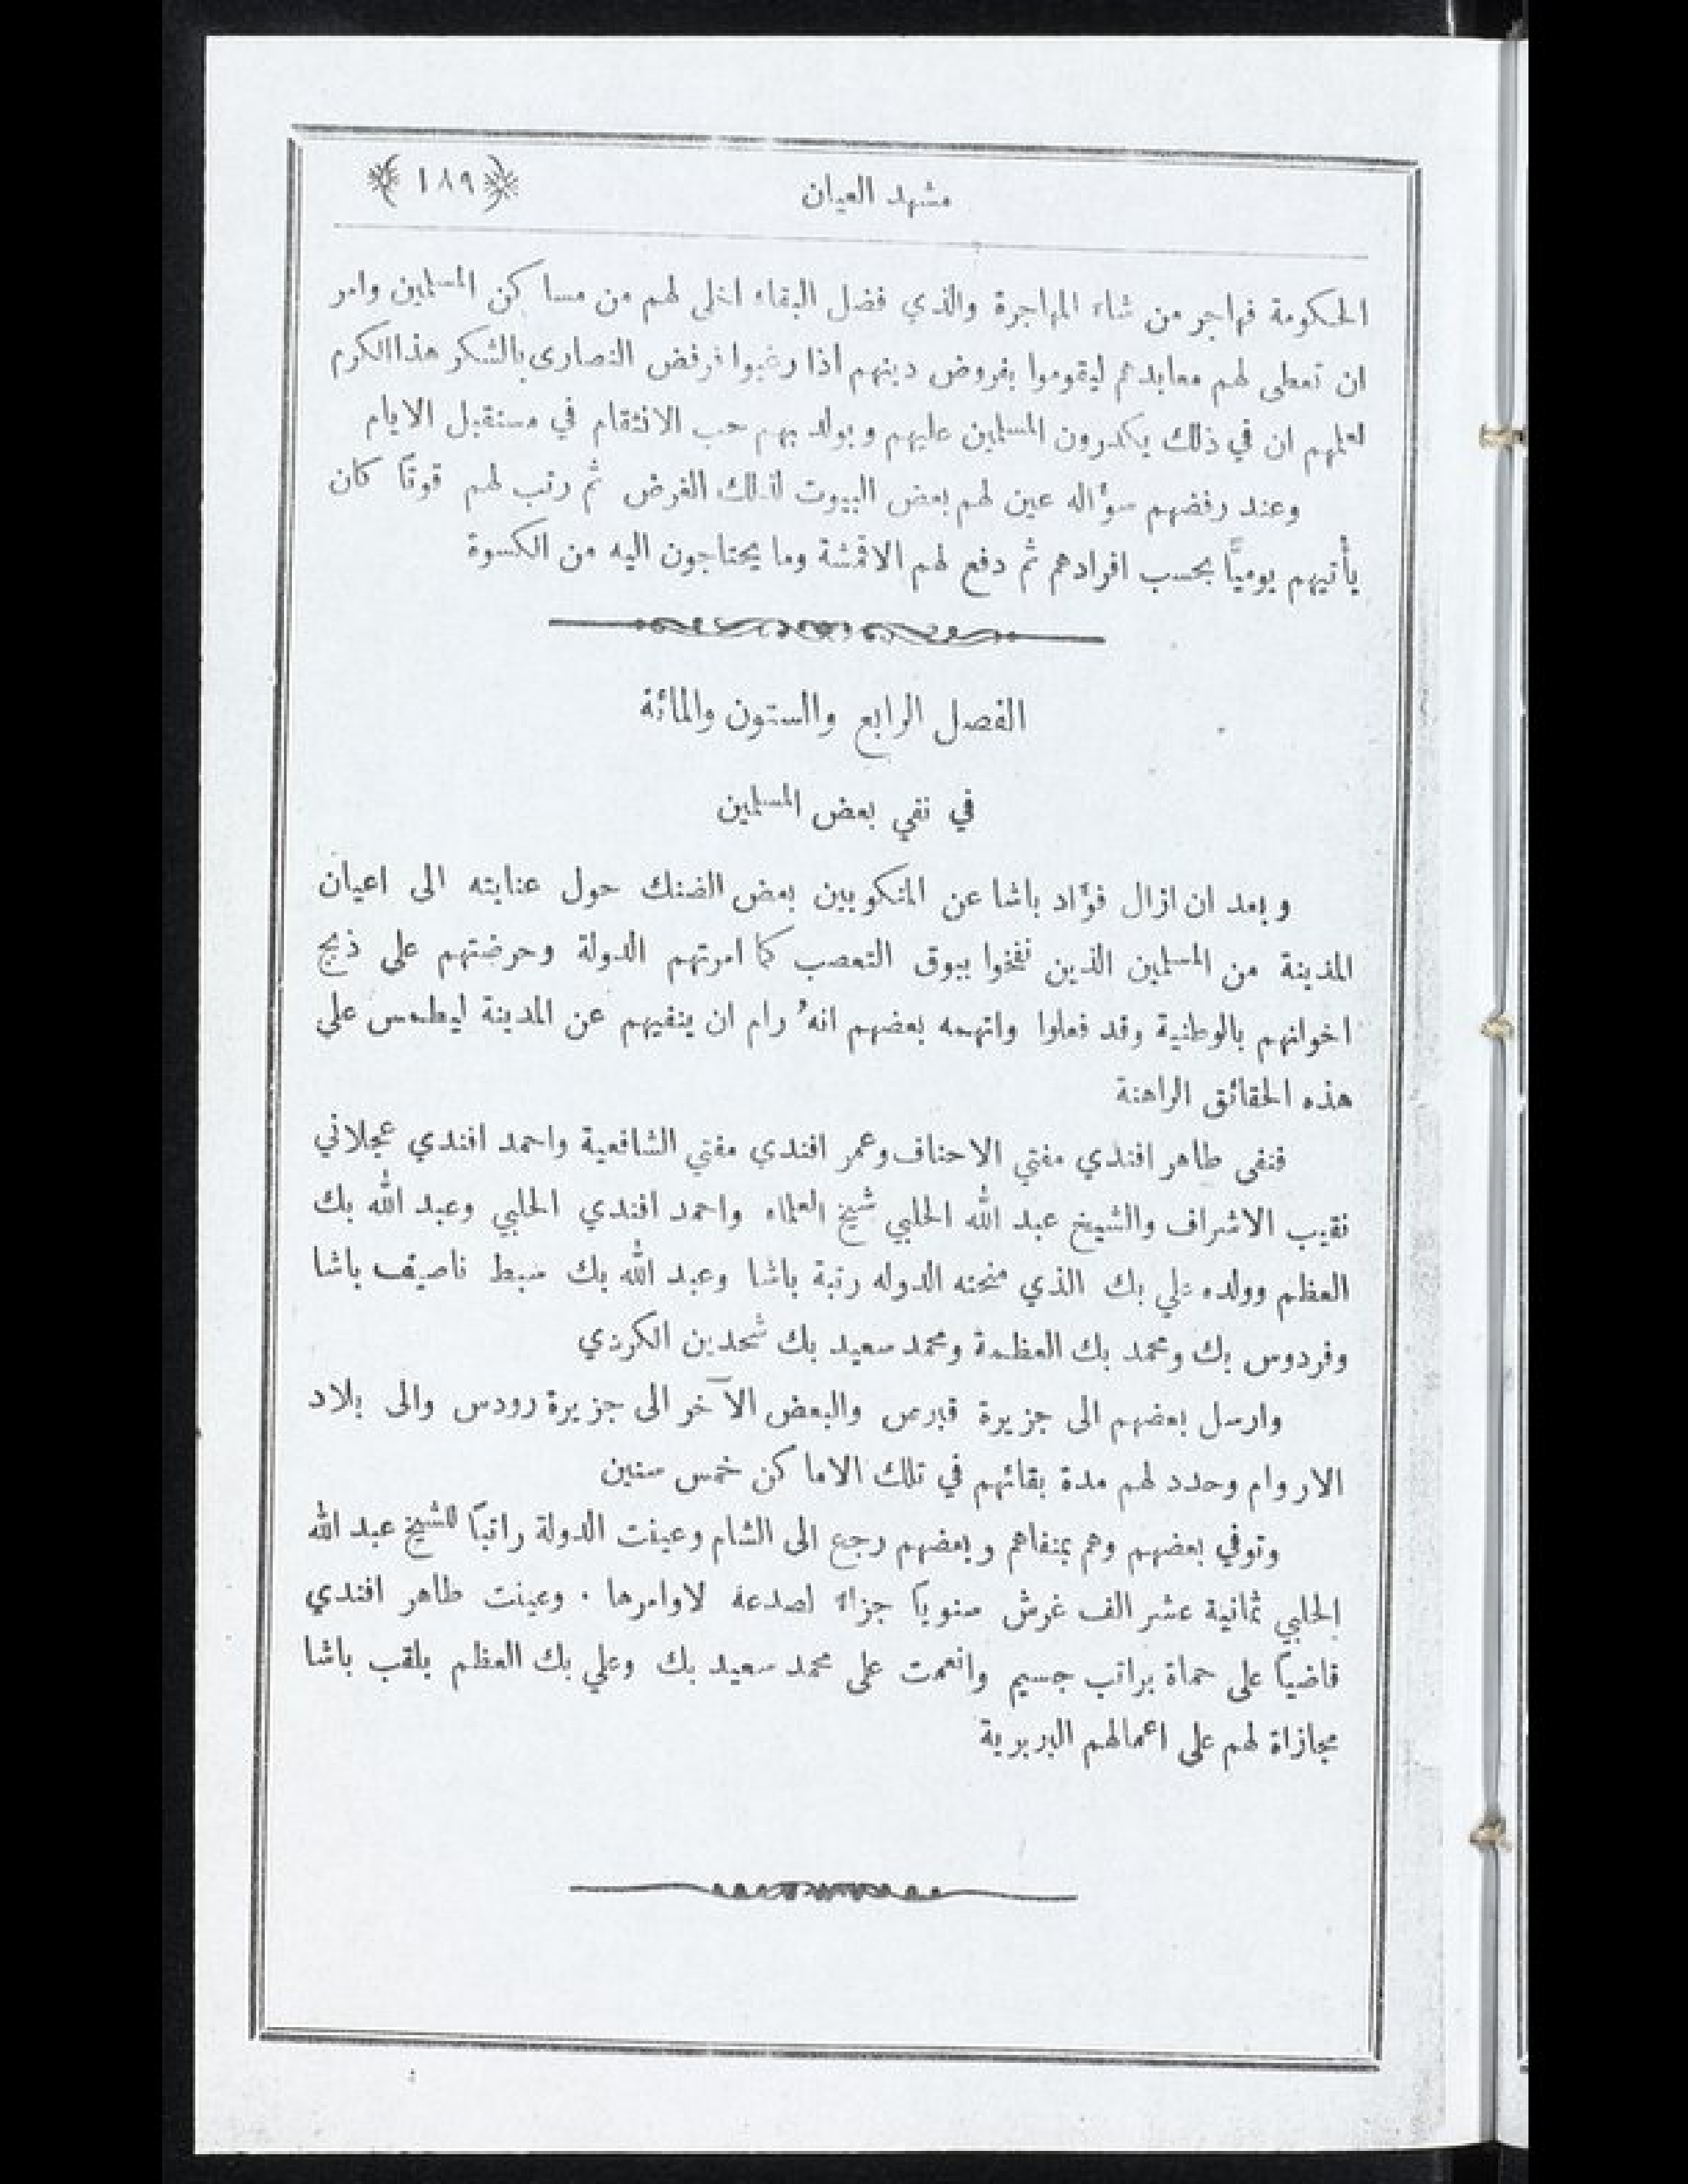 مشهد العيان ﴿١٨٩﴾
الحكومة فهاجر من شاء المهاجرة والذي فضل البقاء اخلى لهم من مساكن المسلمين وامر
ان تعطى لهم معابدهم ليقوموا بفروض دينهم اذا رغبوا فرفض النصارى بالشكر هذا الكرم
لعلمهم ان في ذلك يكدرون المسلمين عليهم ويولد بهم حب الانتقام في مستقبل الايام
وعند رفضهم سؤاله عين لهم بعض البيوت لذلك الغرض ثم رتب لهم قوتًا كان
يأتيهم يوميًّا بحسب افرادهم ثم دفع لهم الاقمشة وما يحتاجون اليه من الكسوة
الفصل الرابع والستون والمائة
في نفي بعض المسلمين
وبعد ان ازال فؤاد باشا عن المنكوبين بعض الضنك حول عنايته الى اعيان
المدينة من المسلمين الذين نفخوا ببوق التعصب كما امرتهم الدولة وحرضتهم على ذبح
اخوانهم بالوطنية وقد فعلوا واتهمه بعضهم انهُ رام ان ينفيهم عن المدينة ليطمس على
هذه الحقائق الراهنة
فنفى طاهر افندي مفتي الاحناف وعمر افندي مفتي الشافعية واحمد افندي عجلاني
نقيب الاشراف والشيخ عبد الله الحلبي شيخ العلماء واحمد افندي الحلبي وعبد الله بك
العظم وولده علي بك الذي منحته الدوله رتبة باشا وعبد الله بك سبط ناصيف باشا
وفردوس بك ومحمد بك العظمة ومحمد سعيد بك شمدين الكردي
وارسل بعضهم الى جزيرة قبرص والبعض الآخر الى جزيرة رودس والى بلاد
الاروام وحدد لهم مدة بقائهم في تلك الاماكن خمس سنين
وتوفي بعضهم وهم بمنفاهم وبعضهم رجع الى الشام وعينت الدولة راتبًا للشيخ عبد الله
الحلبي ثمانية عشر الف غرش سنويًا جزاء لصدعه لاوامرها . وعينت طاهر افندي
قاضيًا على حماة براتب جسيم وانعمت على محمد سعيد بك وعلي بك العظم بلقب باشا
مجازاة لهم على اعمالهم البربرية